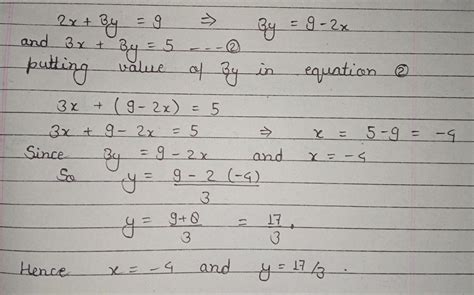 2x + 3y = 9 ⇒ 3y = 9 - 2x
and 3x + 3y = 5 ---②
putting value of 3y in equation ②
3x + (9 - 2x) = 5
3x + 9 - 2x = 5 ⇒ x = 5 - 9 = -4
Since 3y = 9 - 2x and x = -4
So y = 9 - 2 (-4) / 3
y = 9+8 / 3 = 17 / 3 .
Hence x = -4 and y = 17/3 .